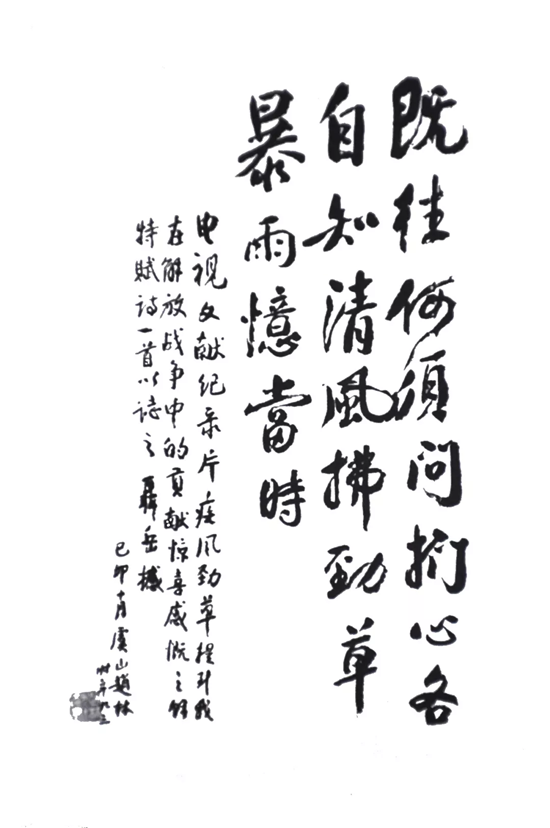 既往何須问捫心各
自知清風拂勁草
暴雨憶當時
电视文献纪录片疾风劲草提到我
在解放战争中的贡献惊喜感慨之餘
特赋诗一首以誌之
己卯十月虞山趙林
时年九三